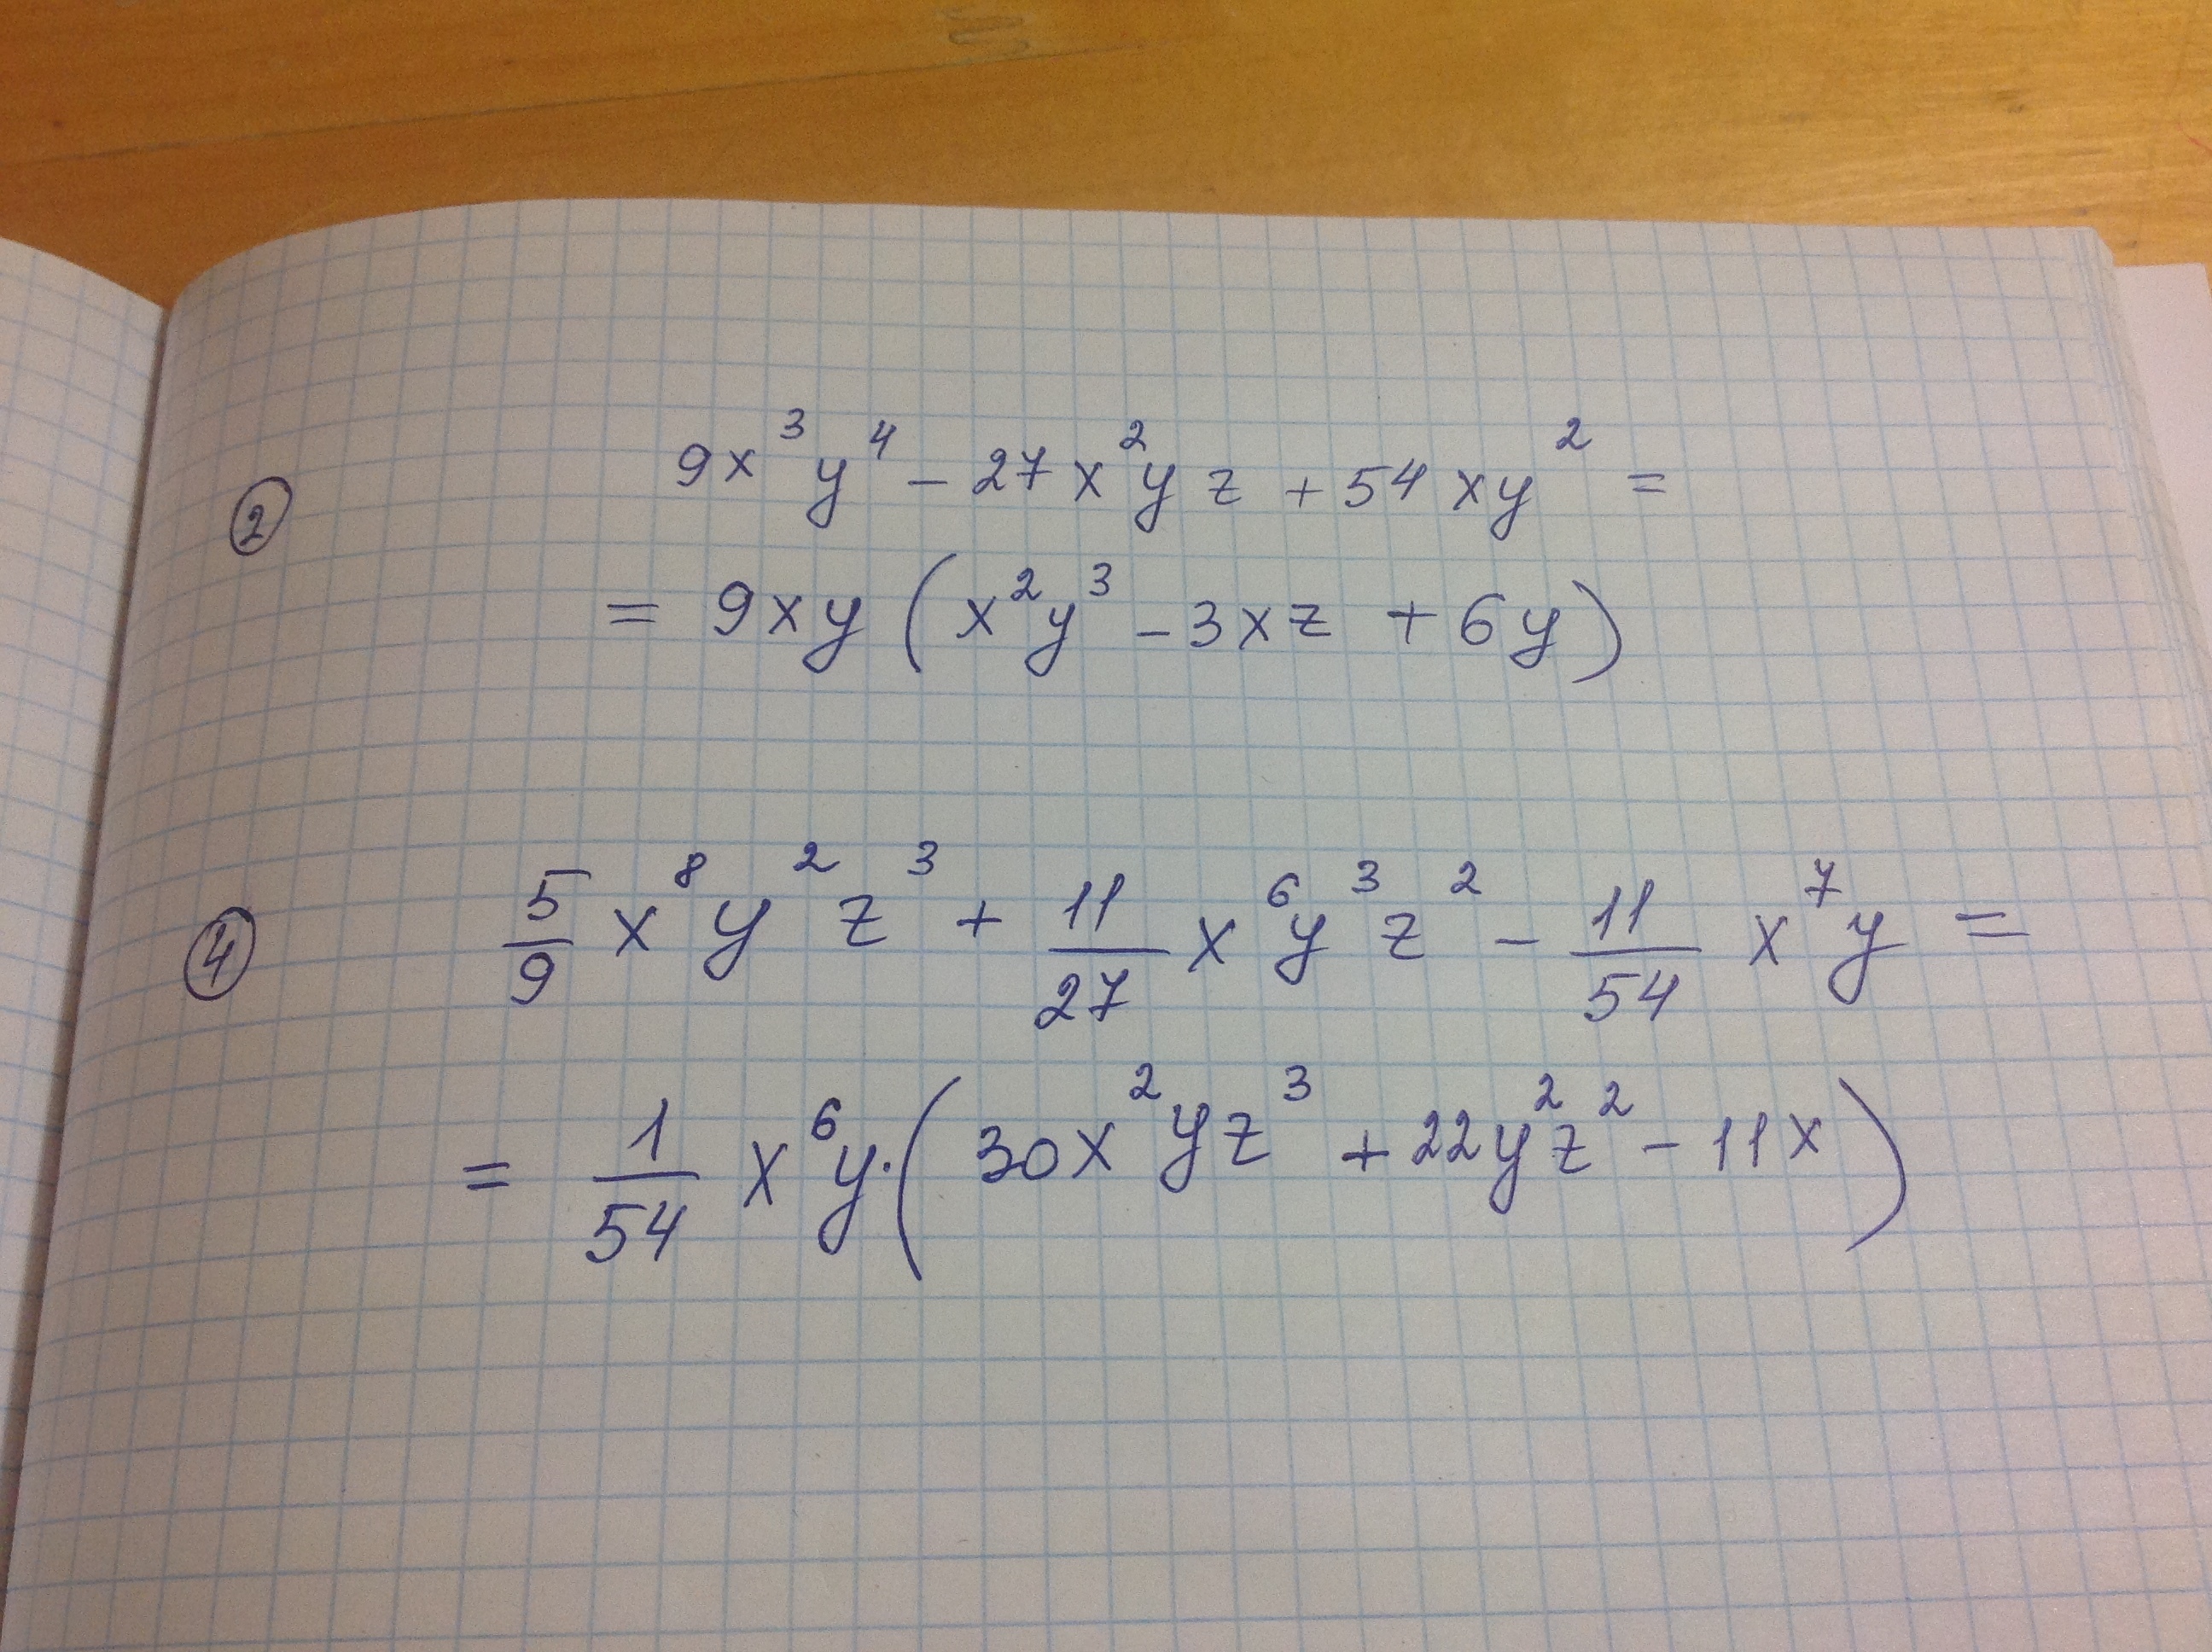 ② 9x³y⁴ - 27x²yz + 54xy² =
= 9xy (x²y³ - 3xz + 6y)
④ 5/9 x⁸y²z³ + 11/27 x⁶y³z² - 11/54 x⁷y =
= 1/54 x⁶y · (30x²yz³ + 22y²z² - 11x)